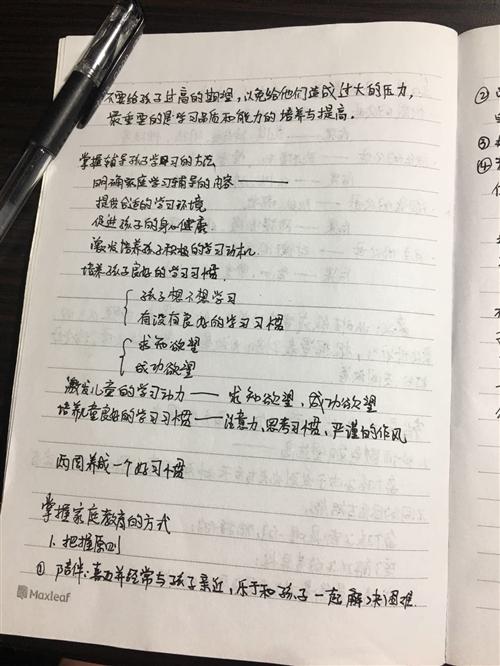 不要给孩子过高的期望，以免给他们造成过大的压力，
最重要的是学习品质和能力的培养与提高。
掌握辅导孩子学习的方法
明确家庭学习辅导的内容——
提供合适的学习环境
促进孩子的身心健康
激发培养孩子积极的学习动机
培养孩子良好的学习习惯
孩子想不想学习
有没有良好的学习习惯
求知欲望
成功欲望
激发儿童的学习动力——求知欲望，成功欲望
培养儿童良好的学习习惯——注意力、思考习惯、严谨的作风
两周养成一个好习惯
掌握家庭教育的方式
1. 把握原则
① 陪伴：喜欢并经常与孩子亲近，乐于和孩子一起解决困难.
Maxleaf
②
③
④